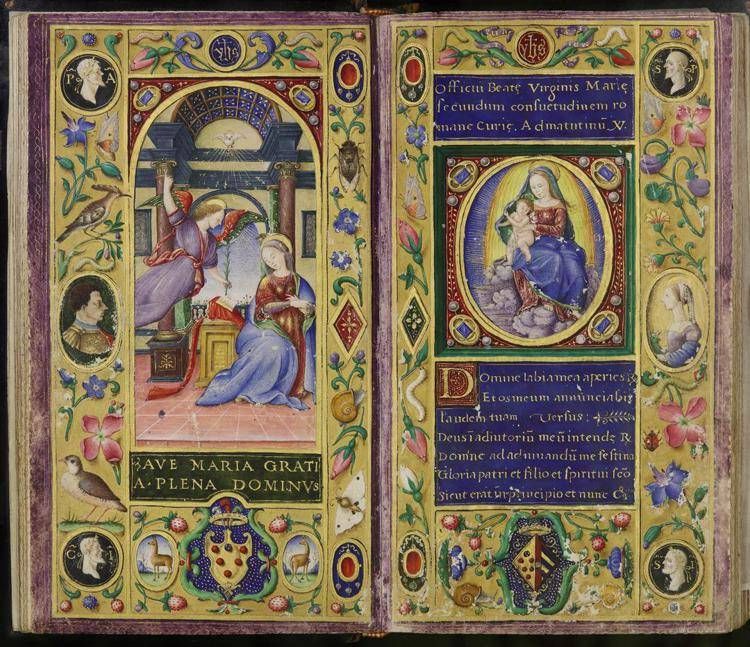 yhs
P A
AVE MARIA GRATI
A · PLENA DOMINVS
C I
yhs
Officiũ Beatę Virginis Marię
secundum consuetudinem ro
mane Curię. Ad matutinũ V.
S
Domine labia mea aperies R
Et os meum annunciabit
laudem tuam Versus:
Deus ĩ adiutoriũ meũ intende R
Domine ad adiuuandũ me festina
Gloria patri et filio et spiritui scõ
Sicut erat in principio et nunc
S